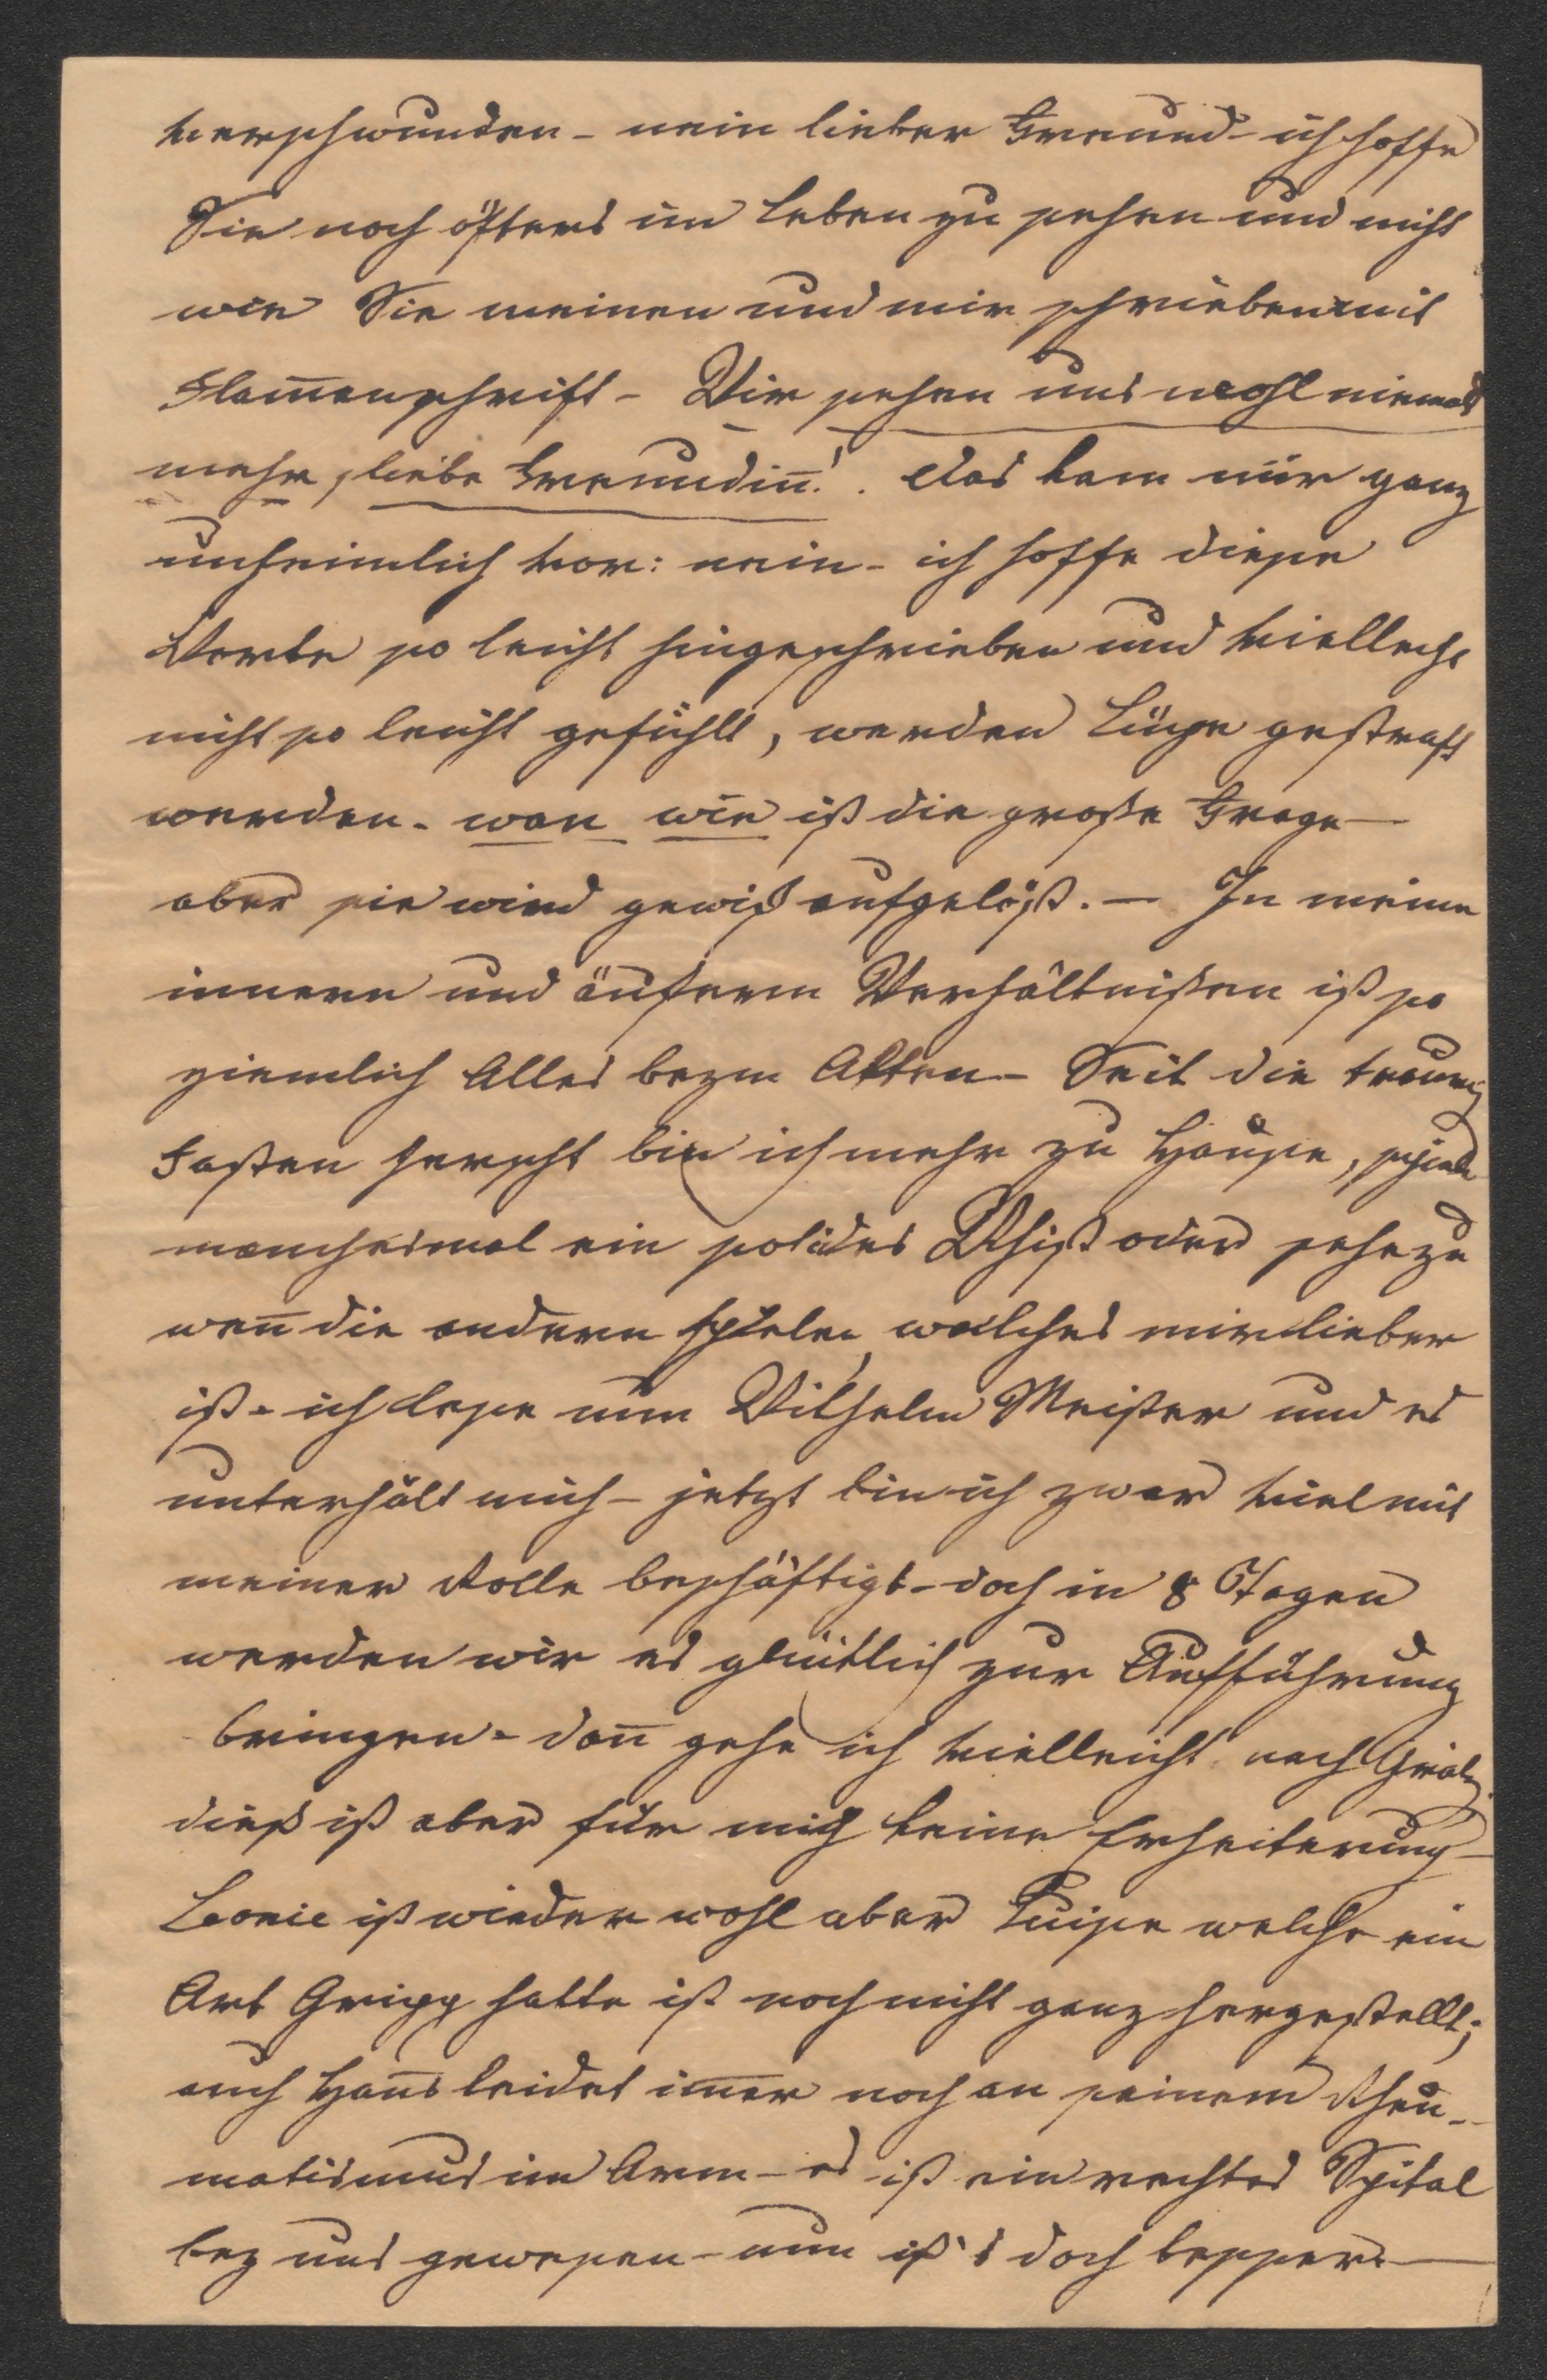 verschwunden – nein lieber Freund – ich hoffe
Sie noch öfters im Leben zu sehen und nicht
wie Sie meinen und mir schrieben mit
Flam̄enschrift – Wir sehen uns wohl niemals
mehr, liebe Freundin̄!. das kam mir ganz
unheimlich vor: nein – ich hoffe diese
Worte so leicht hingeschrieben und vielleicht
nicht so leicht gefühlt, werden Lüge gestraft
werden. wan wie ist die große Frage –
aber sie wird gewiß aufgelößt. – In meinen
innern und äußern Verhältnißen ist so
ziemlich Alles beym Alten – Seit die traurig
Fasten herscht bin ich mehr zu Hause, spiele
manchesmal ein solides Whist oder sehe zu
wen̄ die andern spielen, welches mir lieber
ist – ich lese nun Wilhelm Meister und es
unterhält mich – jetzt bin ich zwar viel mit
meiner Rolle beschäftigt – doch in 8 Tagen
werden wir es glücklich zur Aufführung
bringen – dan̄ gehe ich vielleicht nach Gratz
dieß ist aber für mich keine Erheiterung –
Leonie ist wieder wohl aber Luise welche ein
Art Gripp hatte ist noch nicht ganz hergestellt;
auch Han̄s leidet im̄er noch an seinem Rheu-
matismus im Arm – es ist ein rechtes Spital
bey uns gewesen – nun ist's doch besser. –